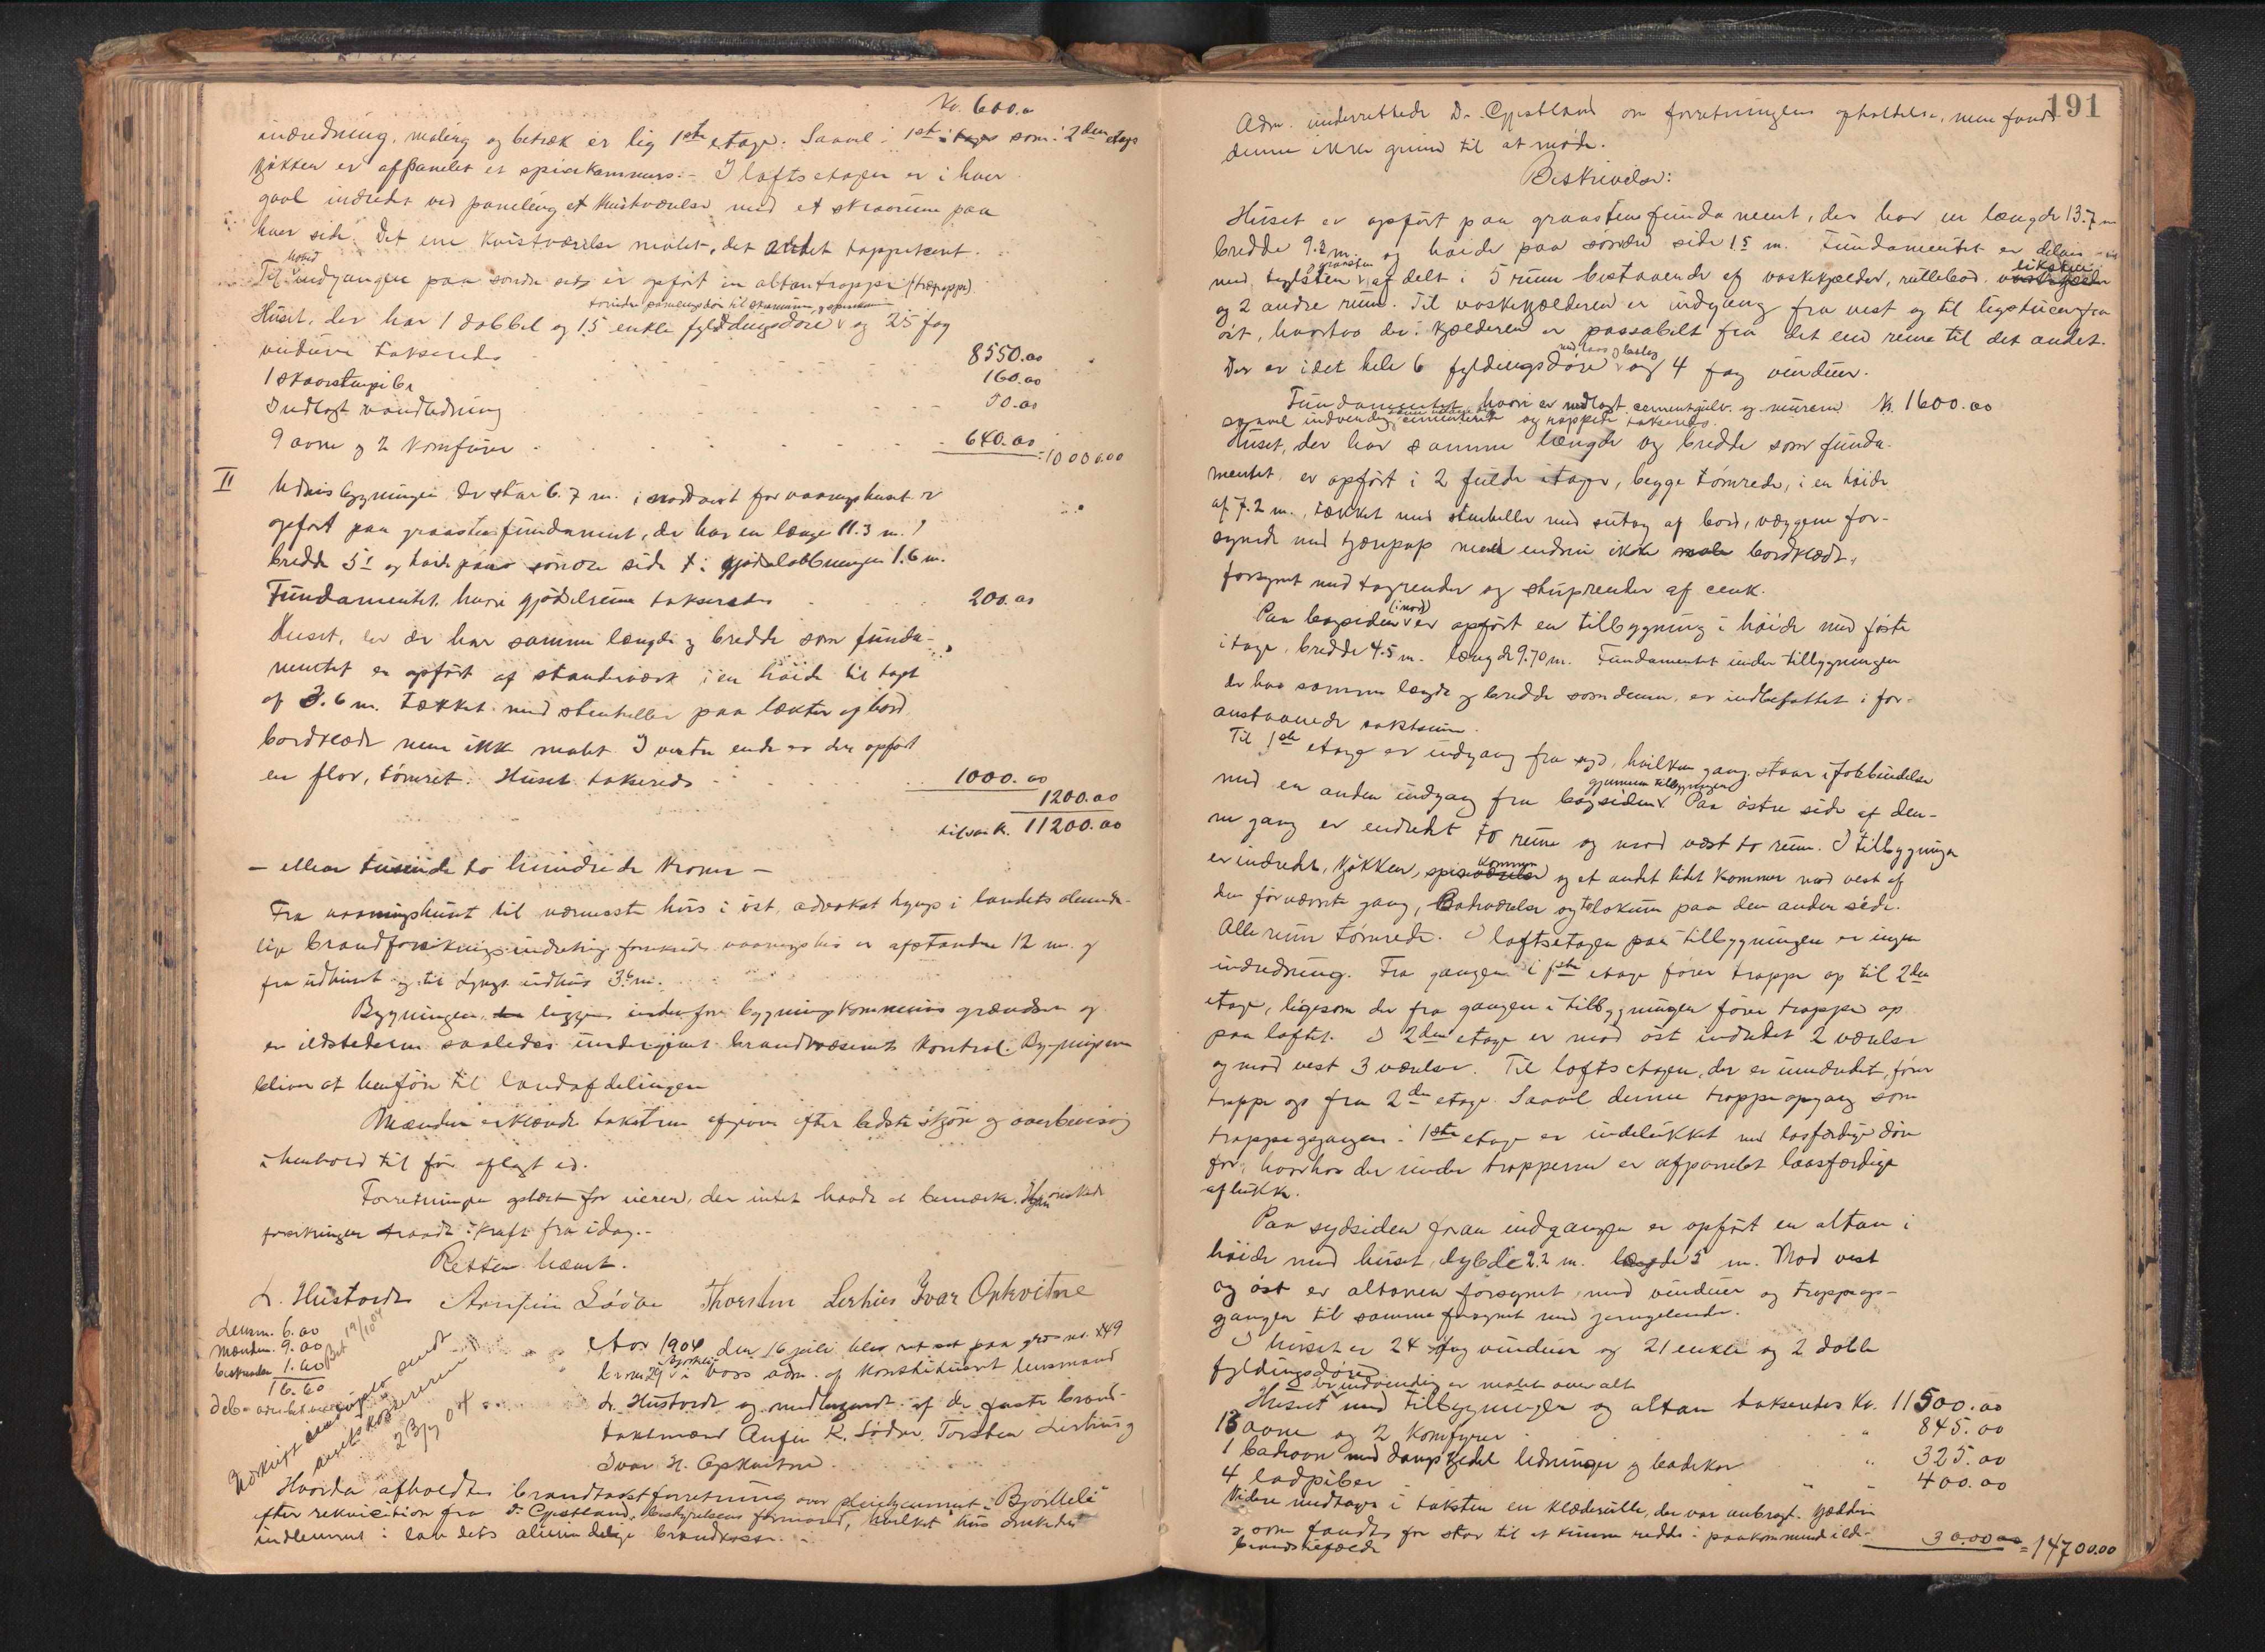 Kr. 600.00
indredning, maling og betræk er lig 1ste etage. Saavel i 1st etage som i 2den etages
kjøkken er afpanelet et spiskammers. - I loftsetagen er i hver
gavl indredet ved paneling et kvistværelse med et skraarum paa
hver side. Det ene kvistværelse malet, det andet tappetseret.
Til hovedindgangen paa søndre side er opført en altantrappe (trætrappe).
foruden panelingsdør til skraarum og spiskammer
Huset, der har 1 dobbel og 15 enkle fyldingsdøre og 25 fag
vinduer takseredes 8550.00
1 skorstenspibe 160.00
Indlagt vandledning 50.00
9 ovne og 2 komfurer 640.00 = 10000.00
II Udhusbygningen der staar 6.7 m. i nordvest for vaaningshuset er
opført paa graastensfundament, der har en længe 11.3 m.,
bredde 5.1 og høide paa søndre side + i gjødselaabningen 1.6 m.
Fundamentet, hvori gjødselrum takseredes 200.00
Huset, der har samme længde og bredde som funda-
mentet er opført af standværk i en høide til taget
af 3.6 m. Tækket med stenheller paa lækter og bord
bordklædt men ikke malet. I vestre ende er der opført
en flor, tømret. Huset takseredes 1000.00
1200.00
tilsam. K. 11200.00
- elleve tusinde to hundrede kroner -
Fra vaaningshuset til nærmeste hus i øst, advokat Lyngs i landets alminde-
lige brandforsikringsindretning forsikrede vaaningshus er afstanden 12 m. og
fra udhuset og til Lyngs udhus 3.6 m.
Bygningen ligger indenfor bygningskommunens grændser og
er ildstederne saaledes undergivet brandvæsenets kontrol. Bygningerne
bliver at henføre til landafdelingen
Mændene erklærede taksterne afgivne efter bedste skjøn og overbevisning
i henhold til før aflagt ed.
Forretningen oplæst for eieren, der intet havde at bemærke. Han ønskede
forsikringen traadt i kraft fra idag. -
Retten hævet.
L. Hustvedt Arnfin Løðve Thorstein Lirhus Ivar Opkvitne
Lensm. 6.00
Mænden. 9.00
beskrivelse 1.60
16.60
Bet 19/10 04
Udskrift
sendt
2 3/9 04
Aar 1904 den 16 juli blev ret sat paa grs no. 249
br no 29 Bjørkeli i Voss adm. af konstitueret lensmand
L. Hustvedt og medlagret af de faste brand-
takstmænd Anfin K. Løðve, Torsten Lirhus og
Ivar H. Opkvitne.
Hvorda afholdtes brandtakstforretning over pleiehjemmet "Bjørkeli"
efter rekvisition fra Dr. Gjestland, bestyrelsens formand, hvilket hus ønskedes
indlemmet i landets almindelige brandkasse. -
191
Adm. underrettede Dr. Gjestland om forretningens afholdelse, men fandt
denne ikke grund til at møde.
Beskrivelse:
Huset er opført paa graastensfundament, der har en længde 13.7 m
bredde 9.2 m. og høide paa søndre side 1.5 m. Fundamentet er
med teglsten og graasten afdelt i 5 rum bestaaende af vaskekjælder, rullebod, likstue
og 2 andre rum. Til vaskekjælderen er indgang fra vest og til ligstuen fra
øst, hvorhos der i kjælderen er passabelt fra det ene rum til det andet.
Der er i det hele 6 fyldingsdøre med laas og beslag og 4 fag vinduer.
Fundamentet hvori er nedlagt cementgulv og murerne
saavel indvendig cementeret og rappet takseredes K. 1600.00
Huset, der har samme længde og bredde som funda-
mentet, er opført i 2 fulde etager, begge tømrede, i en høide
af 7.2 m., tækket med stenheller med sutag af bord, væggene for-
synede med tjærepap med endnu ikke bordklædt,
forsynet med tagrender og stuprender af cenk.
Paa bagsiden (i nord) er opført en tilbygning i høide med første
etage, bredde 4.5 m. længde 9.70 m. Fundamentet under tilbygningen
der har samme længde og bredde som denne, er indbefattet i for-
anstaaende takstsum.
Til 1ste etage er indgang fra syd, hvilken gang staar i forbindelse
med en anden indgang fra bagsiden gjennem tilbygningen. Paa østre side af den-
ne gang er indredet to rum og mod vest to rum. I tilbygningen
er indredet, kjøkken, spiskammer og et andet lidet kammer mod vest af
den førnævnte gang, Badeværelse og tolokum paa den anden side.
Alle rum tømrede. I loftsetagen paa tilbygningen er ingen
indredning. Fra gangen i 1ste etage fører trappe op til 2den
etage, ligesom der fra gangen i tilbygningen fører trappe op
paa loftet. I 2den etage er mod øst indredet 2 værelser
og mod vest 3 værelser. Til loftsetagen, der er uindredet, fører
trappe op fra 2den etage. Saavel denne trappeopgang som
trappeopgangen i 1ste etage er indelukket med laasfærdige døre
for, hvorhos der under trapperne er afpanelet laasfærdige
aflukke.
Paa sydsiden foran indgangen er opført en altan i
høide med huset, dybde 2.2 m. længde 5 m. Mod vest
og øst er altanen forsynet med vinduer og trappeop-
gangen til samme forsynet med jerngelender.
I huset er 24 fag vinduer og 21 enkle og 2 doble
fyldingsdøre
indvendig er malet over alt
Huset med tilbygningen og altan takseredes Kr. 11500.00
13 ovne og 2 komfyrer " 845.00
1 badeovn med dampkjedel ledninger og badekar " 325.00
4 ladpiber " 400.00
Videre medtages i taksten en klæderulle, der var anbragt i kjælderen
og som fandtes for stor til at kunne reddes i paakommende ilds-
brandstilfælde 30.00 = 14700.00